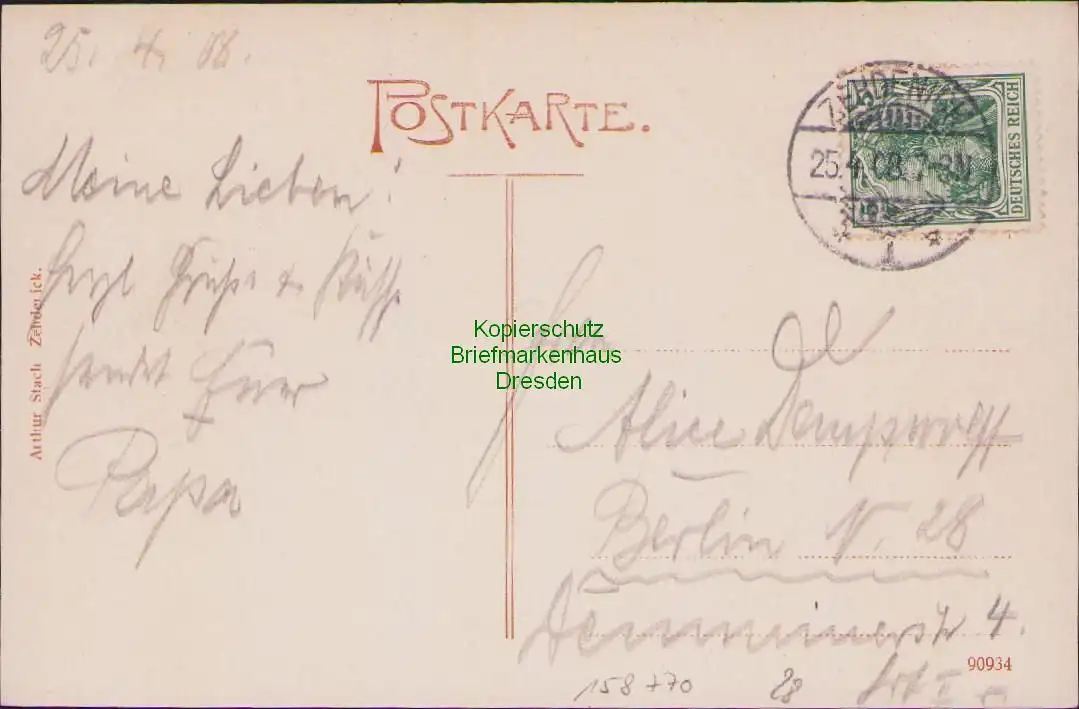 25. 4. 08.
POSTKARTE.
ZEHDENICK
25.4.08.7-8N
DEUTSCHES REICH
Meine Lieben!
Herzl Grüße & Küsse
sendet Euer
Papa
Arthur Stach Zehdenick.
Kopierschutz
Briefmarkenhaus
Dresden
Alice
Berlin N. 28
Demminerstr 4.
90934
158 +70
28